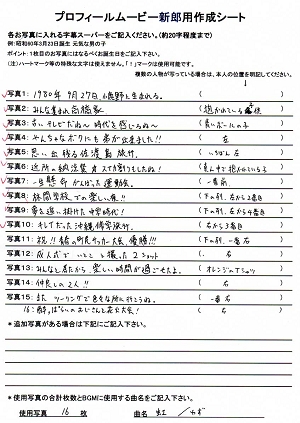 プロフィールムービー新郎用作成シート
各お写真に入れる字幕スーパーをご記入ください。(約20字程度まで)
例:昭和60年3月23日誕生 元気な男の子
ポイント:1枚目のお写真にはなるべくお誕生日をご記入下さい。
(注)ハートマーク等の特殊な文字は使えません。「!」マークは使用可能です。
複数の人物が写っている場合は、本人の位置を明記してください。
写真1: 1980年9月27日 に生まれる。
写真2: みんな集まれ高橋家 (抱かれている
写真3: 古い時代を感じるぬ〜 (青いボールの子
写真4: やんちゃなボクにも弟が出来ました!! ( 左
写真5: 思い出残る佐渡島旅行。 (いちばん左
写真6: 近所の納涼 (真ん中で抱かれている子
写真7: 一生懸命がんばった運動会。 (一番前
写真8: 林間学校での楽しい夜。 (下の列、左から2番目
写真9: 夢を追い掛けた中学時代! (下の列、左から4番目
写真10: そしてだった沖縄修学旅行。 (右から3番目
写真11: 祝!!サッカー大会優勝!!! (下の列、一番右
写真12: 成人式でいとこと撮った2ショット ( 右
写真13: みんなと居たから楽しい時間が過ごせたよ。 (オレンジのTシャツ
写真14: 仲良しの2人!! ( 右
写真15: また ツーリングで色々な所に行こうぬ。 (一番右
16: おじさんと花火大会! ( 右
*追加写真がある場合は下記にご記入下さい。
*使用写真の合計枚数とBGMに使用する曲名をご記入下さい。
使用写真 16 枚 曲名 虹